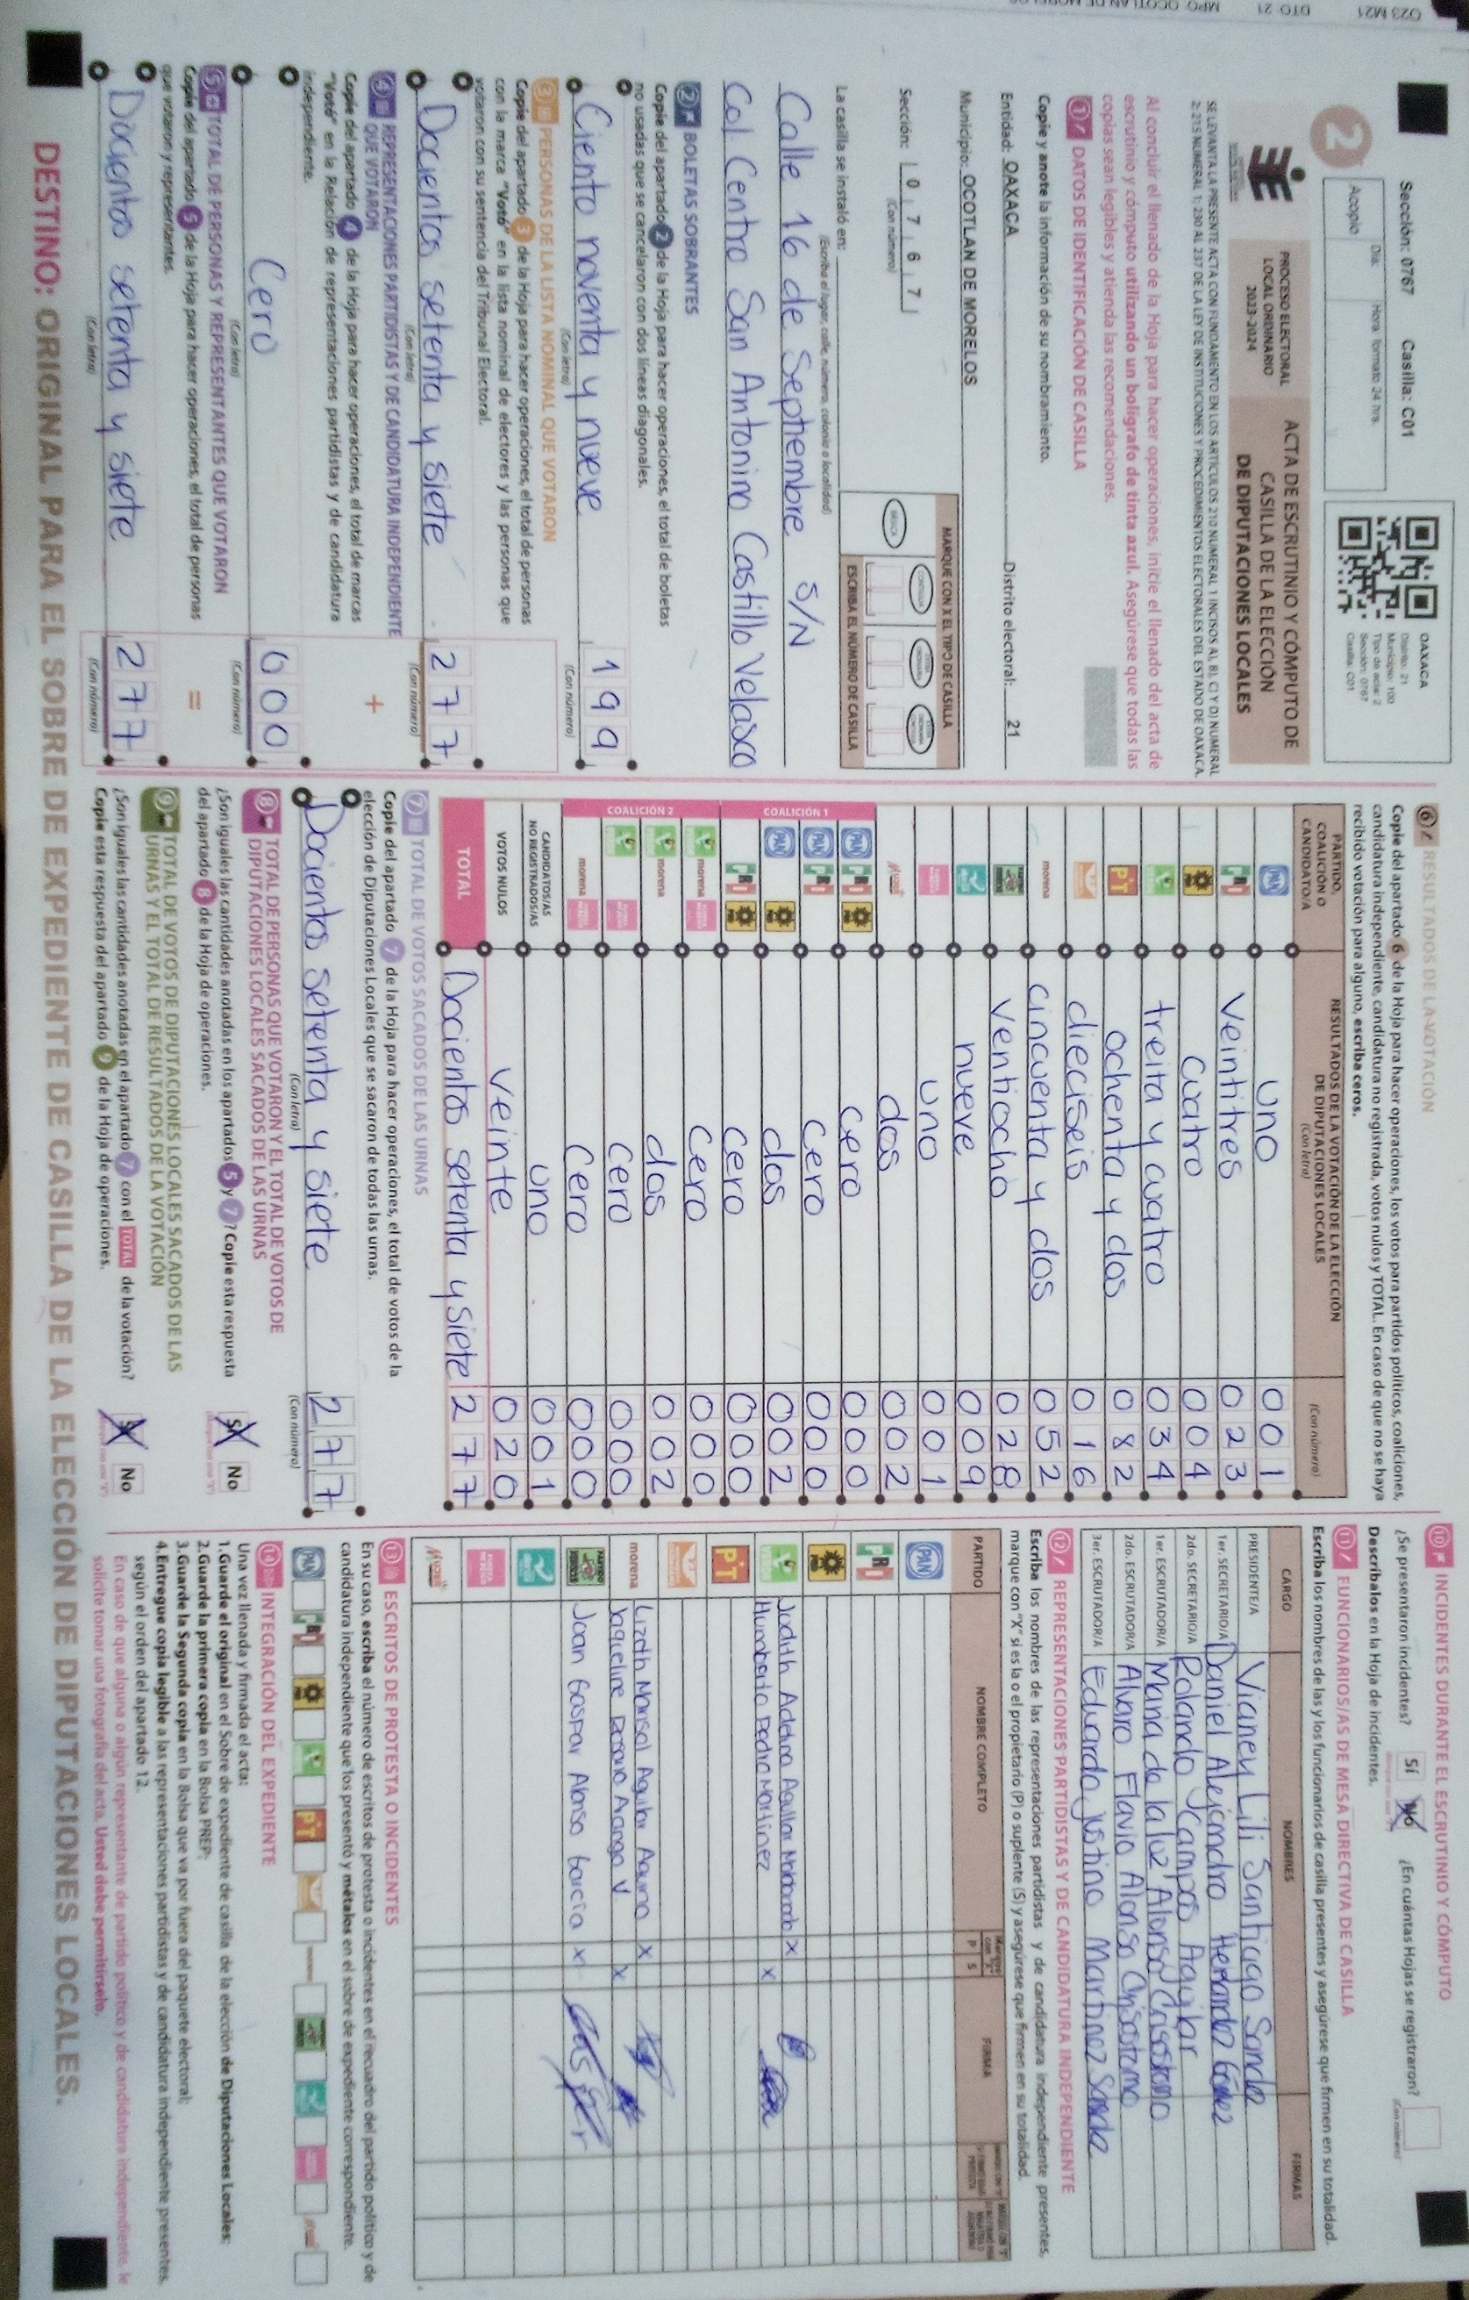 O23 M21
DTO 21
Sección: 0767 Casilla: C01
2
Día: Hora formato 24 hrs.
Acopio
OAXACA
Distrito: 21
Municipio: 100
Tipo de acta: 2
Sección: 0767
Casilla: C01
PROCESO ELECTORAL
LOCAL ORDINARIO
2023-2024
ACTA DE ESCRUTINIO Y CÓMPUTO DE
CASILLA DE LA ELECCIÓN
DE DIPUTACIONES LOCALES
SE LEVANTA LA PRESENTE ACTA CON FUNDAMENTO EN LOS ARTÍCULOS 210 NUMERAL 1 INCISOS A), B), C) Y D) NUMERAL
2; 215 NUMERAL 1; 230 AL 237 DE LA LEY DE INSTITUCIONES Y PROCEDIMIENTOS ELECTORALES DEL ESTADO DE OAXACA.
Al concluir el llenado de la Hoja para hacer operaciones, inicie el llenado del acta de
escrutinio y cómputo utilizando un bolígrafo de tinta azul. Asegúrese que todas las
copias sean legibles y atienda las recomendaciones.
1 DATOS DE IDENTIFICACIÓN DE CASILLA
Copie y anote la información de su nombramiento.
Entidad: OAXACA Distrito electoral: 21
Municipio: OCOTLAN DE MORELOS
Sección: 0 7 6 7
(Con número)
MARQUE CON X EL TIPO DE CASILLA
ESCRIBA EL NÚMERO DE CASILLA
La casilla se instaló en:
(Escriba el lugar, calle, número, colonia o localidad)
Calle 16 de Septiembre S/N
Col Centro San Antonino Castillo Velasco
2 BOLETAS SOBRANTES
Copie del apartado 2 de la Hoja para hacer operaciones, el total de boletas
no usadas que se cancelaron con dos líneas diagonales.
Ciento noventa y nueve 199
(Con letra) (Con número)
3 PERSONAS DE LA LISTA NOMINAL QUE VOTARON
Copie del apartado 3 de la Hoja para hacer operaciones, el total de personas
con la marca "Votó" en la lista nominal de electores y las personas que
votaron con su sentencia del Tribunal Electoral.
Docientos setenta y siete 277
(Con letra) (Con número)
4 REPRESENTACIONES PARTIDISTAS Y DE CANDIDATURA INDEPENDIENTE
QUE VOTARON
Copie del apartado 4 de la Hoja para hacer operaciones, el total de marcas
"Votó" en la Relación de representaciones partidistas y de candidatura
independiente.
+
Cero 000
(Con letra) (Con número)
5 TOTAL DE PERSONAS Y REPRESENTANTES QUE VOTARON
Copie del apartado 5 de la Hoja para hacer operaciones, el total de personas
que votaron y representantes.
=
Docientos setenta y siete 277
(Con letra) (Con número)
6 RESULTADOS DE LA VOTACIÓN
Copie del apartado 6 de la Hoja para hacer operaciones, los votos para partidos políticos, coaliciones,
candidatura independiente, candidatura no registrada, votos nulos y TOTAL. En caso de que no se haya
recibido votación para alguno, escriba ceros.
PARTIDO, COALICIÓN O CANDIDATO/A
RESULTADOS DE LA VOTACIÓN DE LA ELECCIÓN
DE DIPUTACIONES LOCALES
(Con letra) (Con número)
PAN uno 001
PRI Veintitres 023
PRD Cuatro 004
VERDE treita y cuatro 034
PT ochenta y dos 082
dieciseis 016
morena cincuenta y dos 052
ventiocho 028
nueve 009
uno 001
dos 002
COALICIÓN 1
PAN PRI PRD cero 000
PAN PRI Cero 000
PAN PRD dos 002
PRI PRD cero 000
COALICIÓN 2
VERDE morena cero 000
VERDE morena dos 002
VERDE cero 000
morena Cero 000
CANDIDATOS/AS NO REGISTRADOS/AS uno 001
VOTOS NULOS veinte 020
TOTAL Docientos setenta y siete 277
7 TOTAL DE VOTOS SACADOS DE LAS URNAS
Copie del apartado 7 de la Hoja para hacer operaciones, el total de votos de la
elección de Diputaciones Locales que se sacaron de todas las urnas.
Docientos setenta y siete 277
(Con letra) (Con número)
8 TOTAL DE PERSONAS QUE VOTARON Y EL TOTAL DE VOTOS DE
DIPUTACIONES LOCALES SACADOS DE LAS URNAS
¿Son iguales las cantidades anotadas en los apartados 5 y 7? Copie esta respuesta
del apartado 8 de la Hoja de operaciones.
Sí No
9 TOTAL DE VOTOS DE DIPUTACIONES LOCALES SACADOS DE LAS
URNAS Y EL TOTAL DE RESULTADOS DE LA VOTACIÓN
¿Son iguales las cantidades anotadas en el apartado 7 con el TOTAL de la votación?
Copie esta respuesta del apartado 9 de la Hoja de operaciones.
Sí No
10 INCIDENTES DURANTE EL ESCRUTINIO Y CÓMPUTO
¿Se presentaron incidentes? Sí No ¿En cuántas Hojas se registraron?
(Con número)
Descríbalos en la Hoja de incidentes.
11 FUNCIONARIOS/AS DE MESA DIRECTIVA DE CASILLA
Escriba los nombres de las y los funcionarios de casilla presentes y asegúrese que firmen en su totalidad.
CARGO NOMBRES FIRMAS
PRESIDENTE/A Vianey Lili Santiago Sande
1er. SECRETARIO/A Daniel Alejandro Hernandez Gómez
2do. SECRETARIO/A Rolando Campos Aguilar
1er. ESCRUTADOR/A Maria de la luz Alonso Crisostomo
2do. ESCRUTADOR/A Alvaro Flavio Alonso Crisostomo
3er. ESCRUTADOR/A Eduarda Justina Martinez Sande
12 REPRESENTACIONES PARTIDISTAS Y DE CANDIDATURA INDEPENDIENTE
Escriba los nombres de las representaciones partidistas y de candidatura independiente presentes,
marque con "X" si es la o el propietario (P) o suplente (S) y asegúrese que firmen en su totalidad.
PARTIDO NOMBRE COMPLETO P S FIRMA
PAN
PRI
PRD
VERDE Judith Adelina Aguilar x
Humberto Pedro Martinez x
PT
morena Lizeth Marisol Aguilar Aquino x
Jaqueline Arango V x
Joan Gaspar Alonso Garcia x
13 ESCRITOS DE PROTESTA O INCIDENTES
En su caso, escriba el número de escritos de protesta o incidentes en el recuadro del partido político y de
candidatura independiente que los presentó y métalos en el sobre de expediente correspondiente.
PAN PRI PRD VERDE PT
14 INTEGRACIÓN DEL EXPEDIENTE
Una vez llenada y firmada el acta:
1.Guarde el original en el Sobre de expediente de casilla de la elección de Diputaciones Locales;
2.Guarde la primera copia en la Bolsa PREP;
3.Guarde la Segunda copia en la Bolsa que va por fuera del paquete electoral;
4.Entregue copia legible a las representaciones partidistas y de candidatura independiente presentes,
según el orden del apartado 12.
En caso de que alguna o algún representante de partido político y de candidatura independiente, le
solicite tomar una fotografía del acta. Usted debe permitírselo.
DESTINO: ORIGINAL PARA EL SOBRE DE EXPEDIENTE DE CASILLA DE LA ELECCIÓN DE DIPUTACIONES LOCALES.